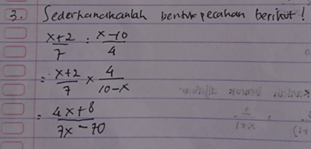 3. Sederhanakanlah bentuk pecahan berikut!
x+2/7 : x-10/4
= x+2/7 × 4/10-x
= 4x+8/7x-70